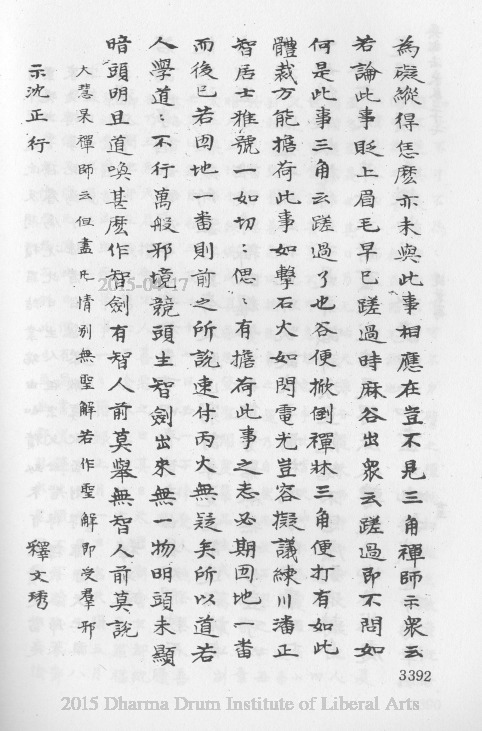 為礙縱得怎麼亦未與此事相應在豈不見三角禪師示衆云
若論此事眨上眉毛早已蹉過時麻谷出衆云蹉過即不問如
何是此事三角云蹉過了也谷便掀倒禪牀三角便打有如此
體裁方能擔荷此事如擊石火如閃電光豈容擬議練川潘正
智居士雅號一如切:偲:有擔荷此事之志必期囙地一番
而後已若囙地一番則前之所說速付丙火無疑矣所以道若
人學道:不行萬般邪境競頭生智劍出來無一物明頭未顯
暗頭明且道喚甚麼作智劍有智人前莫舉無智人前莫說
大慧杲禪師云但盡凡情別無聖解若作聖解即受羣邪
示沈正行 釋文琇
3392
2015-04-17
2015 Dharma Drum Institute of Liberal Arts